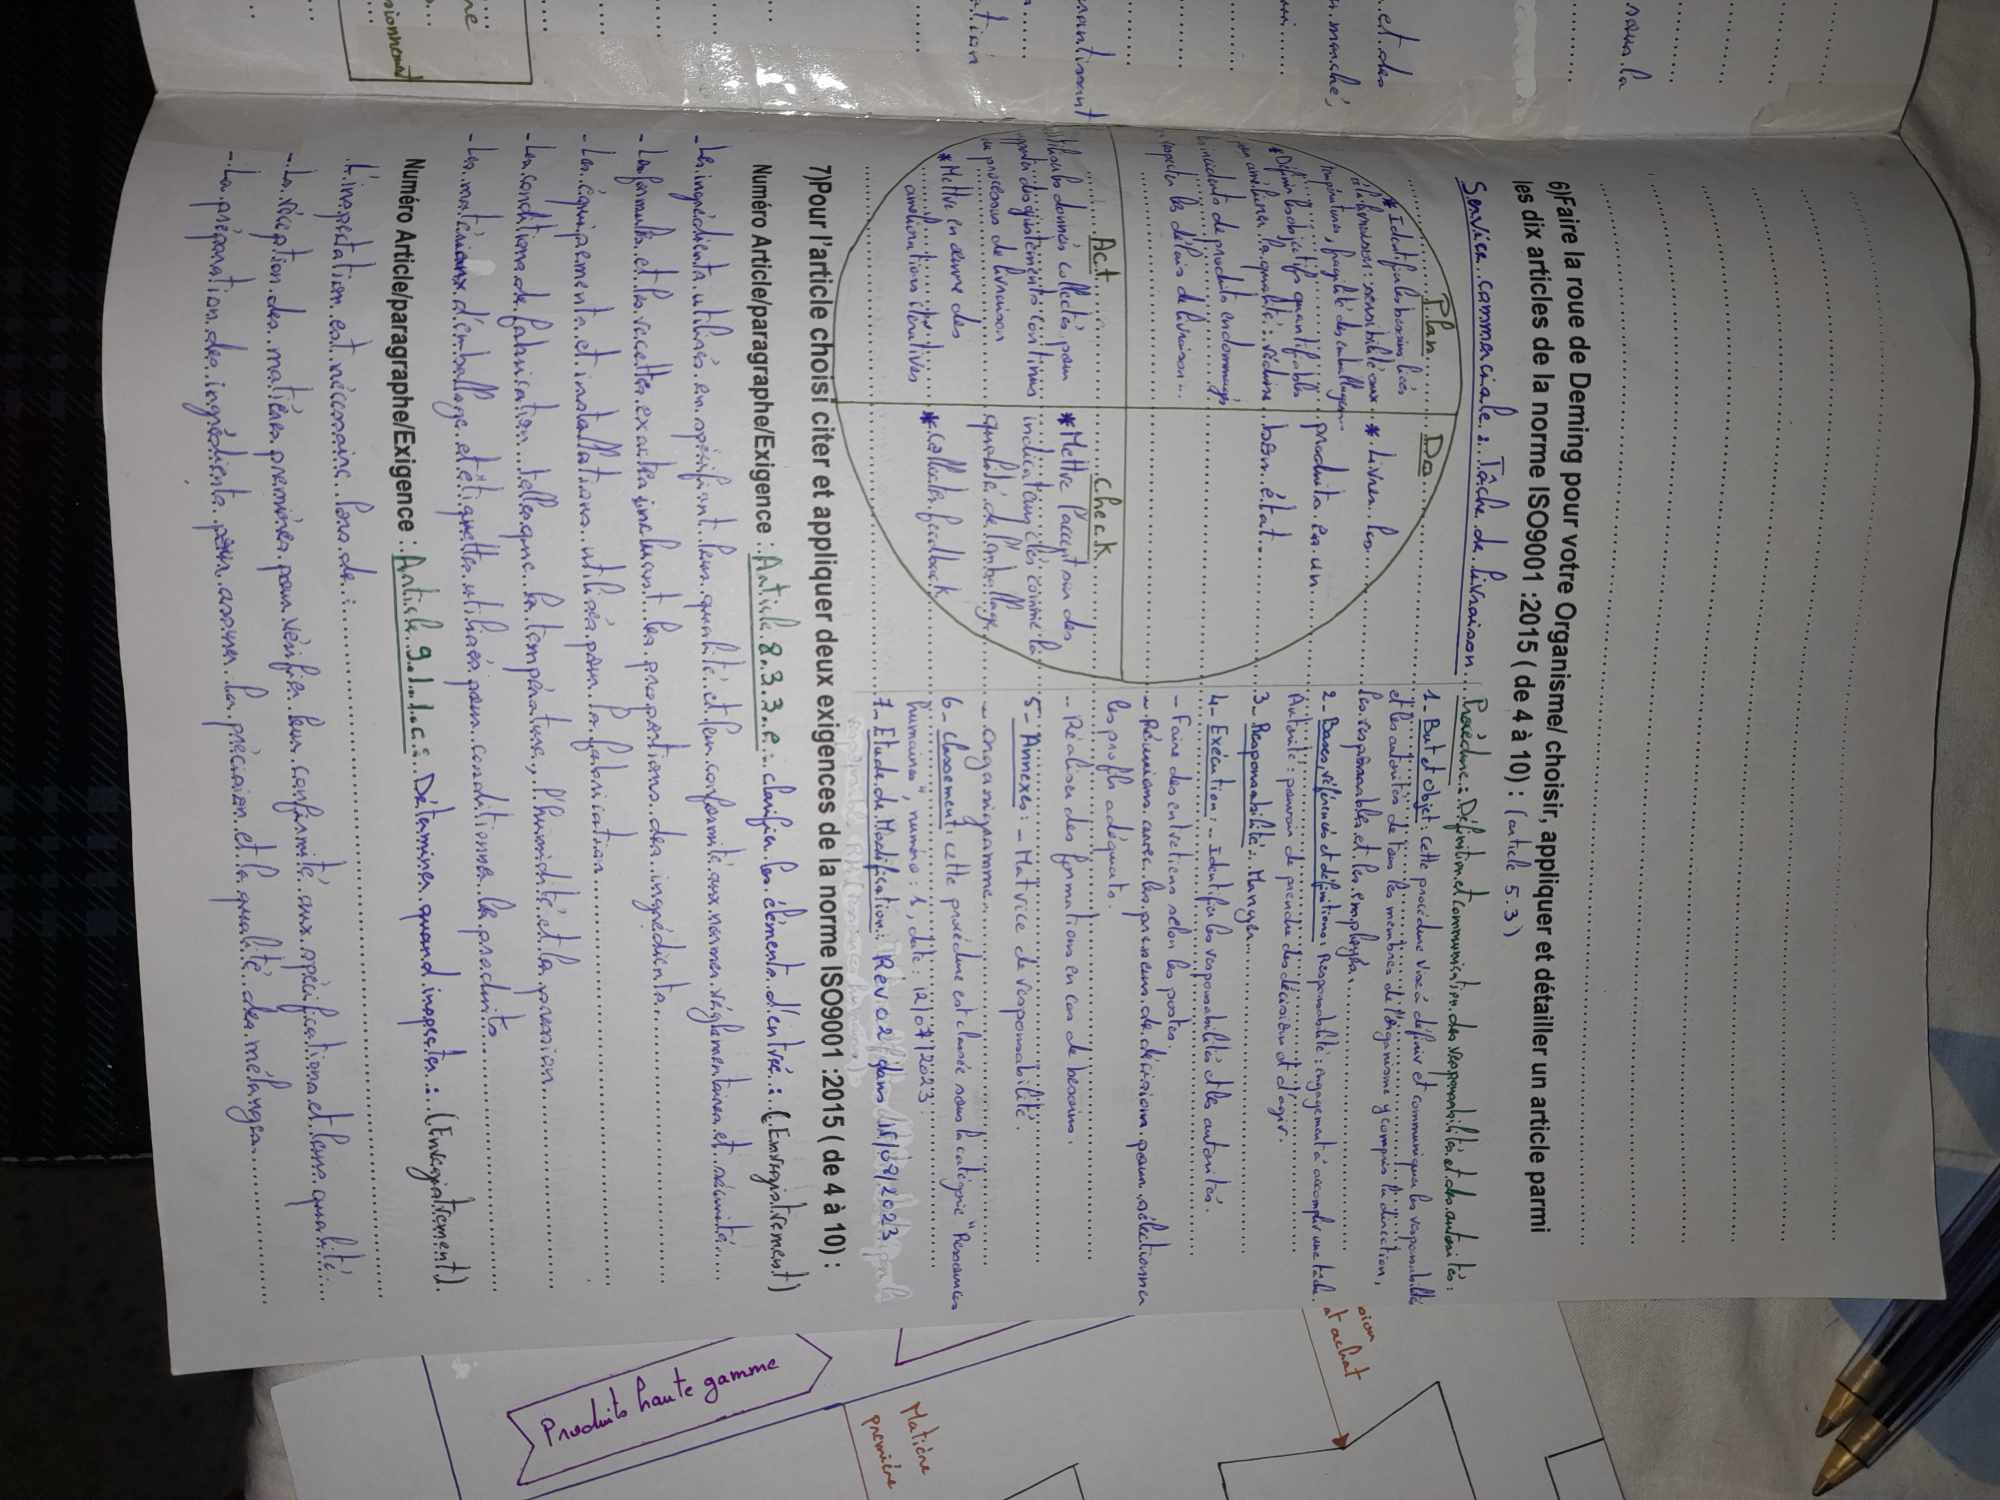 sous la
et des
marché,
garantissant
6)Faire la roue de Deming pour votre Organisme/ choisir, appliquer et détailler un article parmi
les dix articles de la norme ISO9001 :2015 ( de 4 à 10) : (article 5.3)
Service commerciale : Tâche de livraison
Plan
* Identifier les besoins liés
à la livraison : sensibilité aux
températures, fragilité des emballages
* Définir les objectifs quantifiables
pour améliorer la qualité : réduire
les incidents de produits endommagés
respecter les délais de livraison...
Do
* Livrer les
produits en un
bon état
Act
Utiliser les données collectés pour
apporter des ajustements continus
au processus de livraison
* Mettre en œuvre des
améliorations itératives
Check
* Mettre l'accept sur des
indicateurs clés comme la
qualité de l'emballage
* Collecter feedback
Procédure : Définition et communication des responsabilités et des autorités :
1- But et Objet : cette procédure vise à définir et communiquer les responsabilités
et les autorités de tous les membres de l'organisme y compris la direction,
les responsables et les employés
2- Bases, références et définitions : Responsabilité : engagement à accomplir une tâche.
Autorité : pouvoir de prendre des décision et d'agir.
3- Responsabilité : Manger
4- Exécution : - Identifier les responsabilités et les autorités.
- Faire des entretiens selon les postes.
- Réunions avec les preneurs de décisions pour sélectionner
les profils adéquats.
- Réaliser des formations en cas de besoins.
5- Annexes : - Matrice de responsabilité.
- organigramme
6- Classement : cette procédure est classée sous la catégorie "Ressources
humaines", numéro : 1, date : 12/07/2023
7- Etude de Modification : Rev 02 dans 15/08/2023
7)Pour l'article choisi citer et appliquer deux exigences de la norme ISO9001 :2015 ( de 4 à 10) :
Numéro Article/paragraphe/Exigence : Article 8.3.3.e : clarifier les éléments d'entrée : (Enregistrement)
- Les ingrédients utilisés en spécifiant leurs qualité et leur conformité aux normes réglementaires et sécurité
- Les formules et les recettes exactes incluant les proportions des ingrédients
- Les équipements et installations utilisés pour la fabrication
- Les conditions de fabrication telles que la température, l'humidité et la pression
- Les matériaux d'emballage et étiquettes utilisés pour conditionner le produits
Numéro Article/paragraphe/Exigence : Article 9.1.1.c : Déterminer quand inspecter : (Enregistrement)
L'inspectation est nécessaire lors de :
- La réception des matières premières pour vérifier leur conformité aux spécifications et leurs qualité
- La préparation des ingrédients pour assurer la précision et la qualité des mélanges
achat
Matière
première
Produits haute gamme